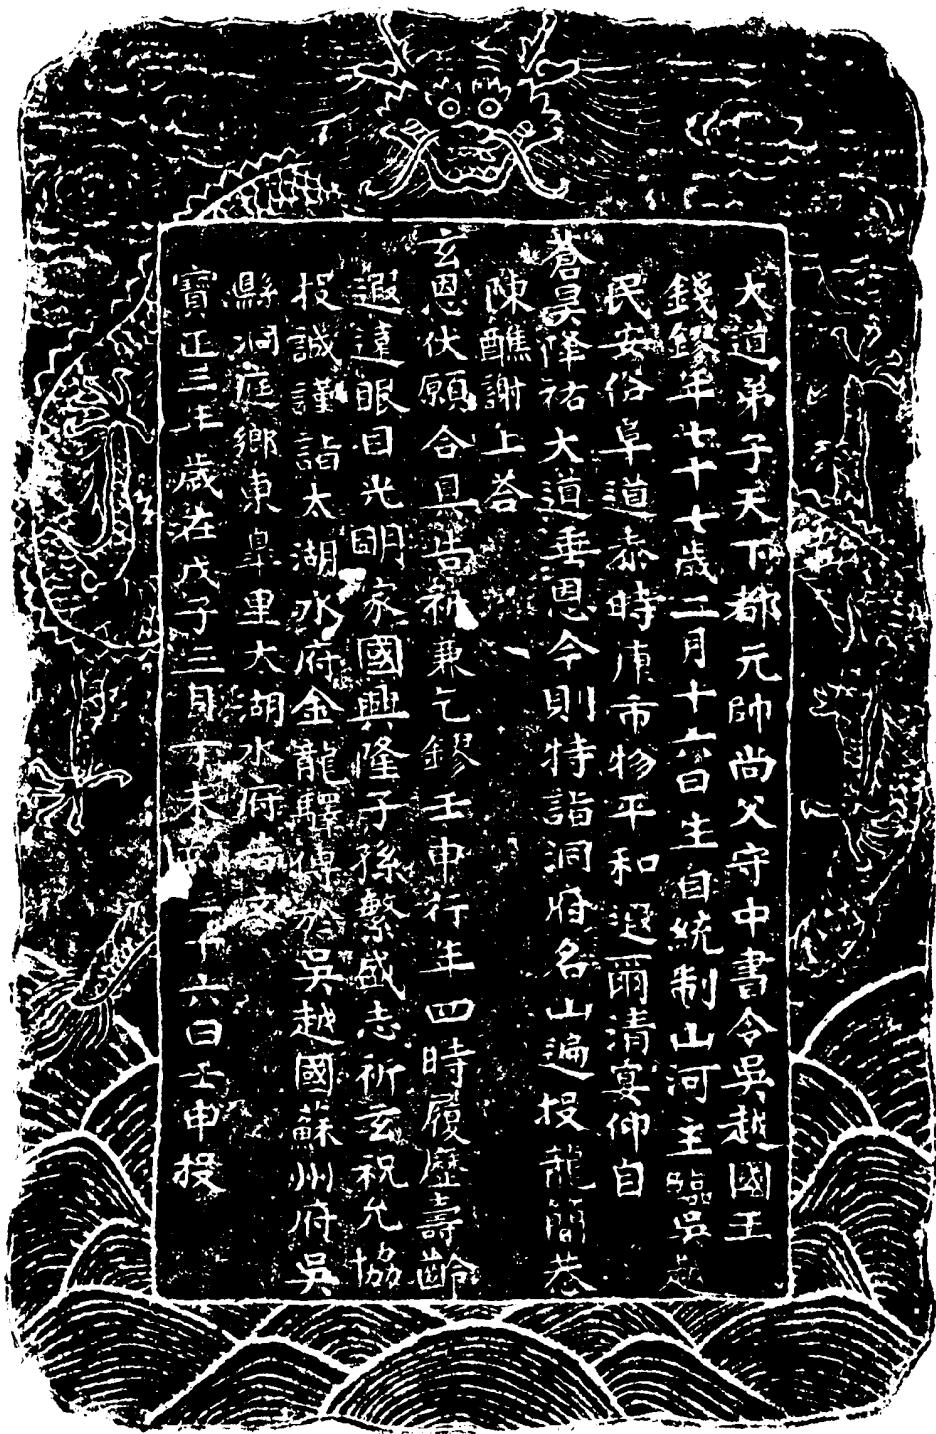 大道弟子天下都元帥尚父守中書令吳越國王
錢鏐年七十七歲二月十六日生自統制山河主臨吳越
民安俗阜道泰時康市物平和遐爾清宴仰自
蒼昊降祐大道垂恩今則特詣洞府名山遍投龍簡恭
陳醮謝上荅
玄恩伏願合具告祈兼乞鏐壬申行年四時履歷壽齡
遐遠眼目光明家國興隆子孫繁盛志祈玄祝允協
投誠謹詣太湖水府金龍驛傳於吳越國蘇州府吳
縣洞庭鄉東皋里太湖水府告文
寶正三年歲在戊子三月丁未朔二十六日壬申投